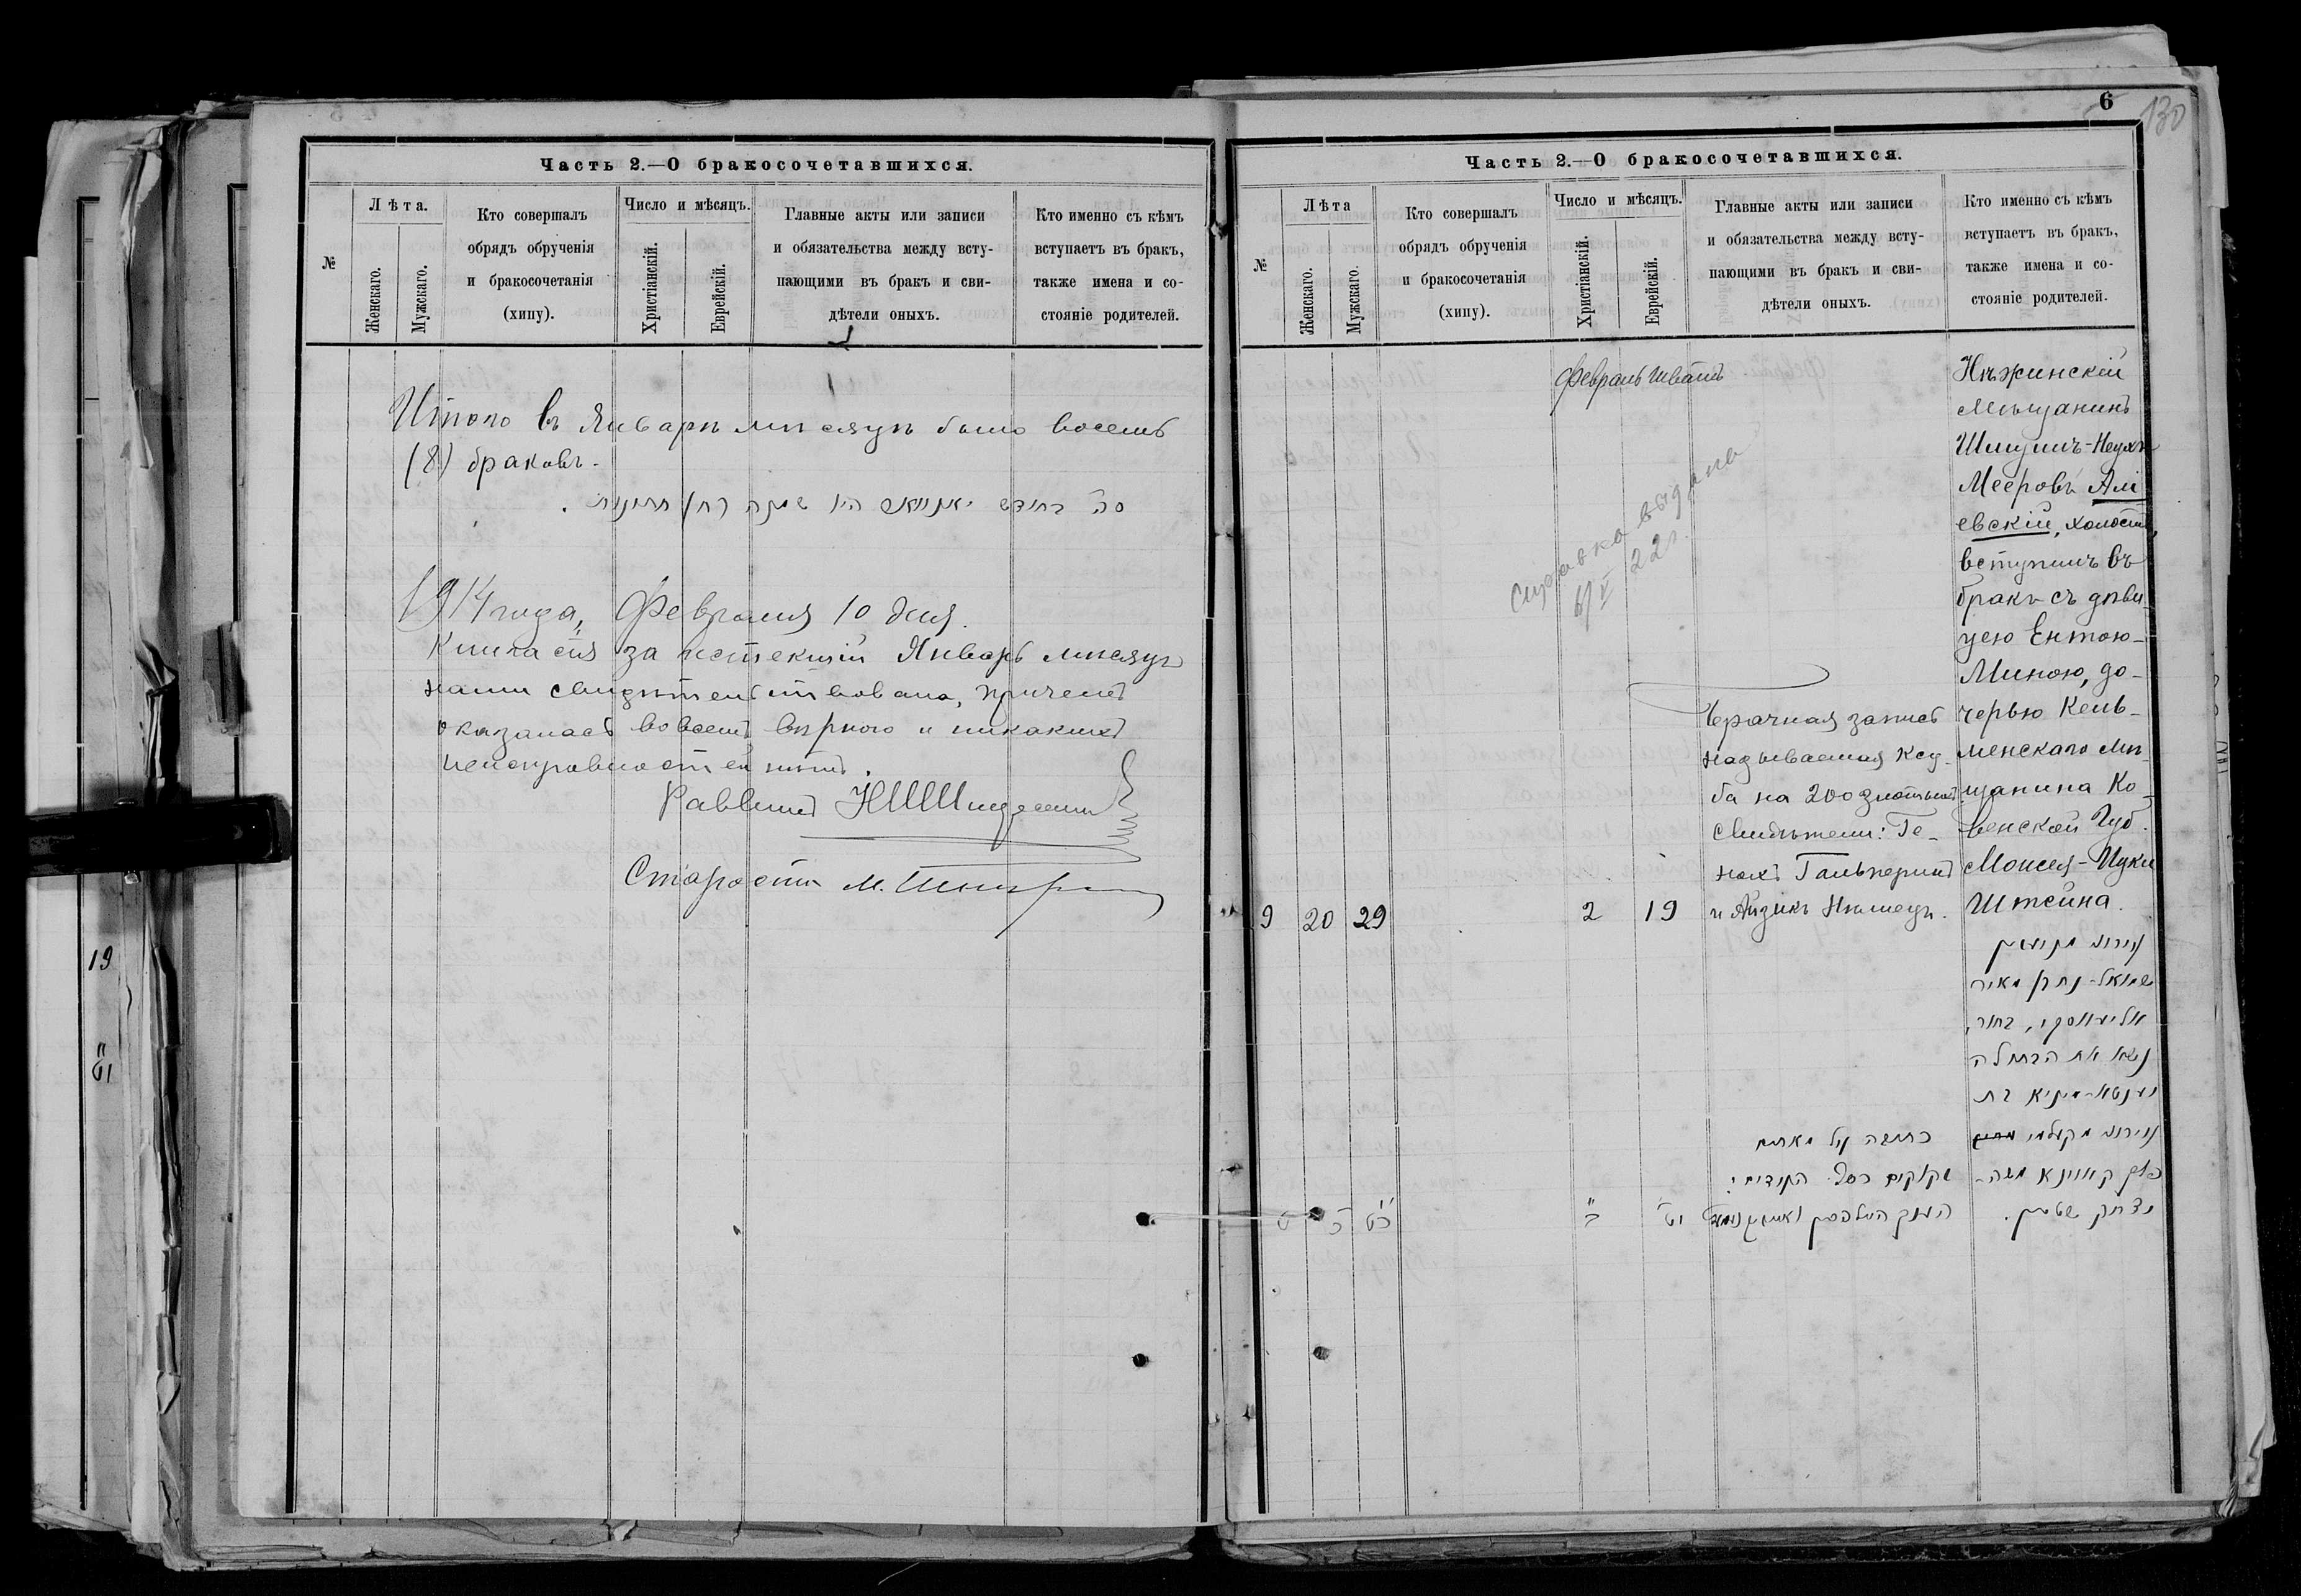 Часть 2.—О бракосочетавшихся.
№
Лѣта.
Женскаго.
Мужскаго.
Кто совершалъ
обрядъ обрученія
и бракосочетанія
(хипу).
Число и мѣсяцъ.
Христіанскій.
Еврейскій.
Главные акты или записи
и обязательства между всту-
пающими въ бракъ и сви-
дѣтели оныхъ.
Кто именно съ кѣмъ
вступаетъ въ бракъ,
также имена и со-
стояніе родителей.
Итого въ Январѣ мѣсяцѣ было восемь
(8) браковъ.
1914 года, Февраля 10 дня.
Книга сія за истекшій Январь мѣсяцъ
нами свидѣтельствована, причемъ
оказалась во всемъ вѣрною и никакихъ
неисправностей нѣтъ.
Раввинъ
Староста М.
19
יט
6
130
Часть 2.—О бракосочетавшихся.
№
Лѣта
Женскаго.
Мужскаго.
Кто совершалъ
обрядъ обрученія
и бракосочетанія
(хипу).
Число и мѣсяцъ.
Христіанскій.
Еврейскій.
Главные акты или записи
и обязательства между всту-
пающими въ бракъ и сви-
дѣтели оныхъ.
Кто именно съ кѣмъ
вступаетъ въ бракъ,
также имена и со-
стояніе родителей.
Февраль Шватъ
Справка выдана
6/V 22 г.
9 20 29
2 19
Брачная запись
называемая Ксу-
ба на 200 злотыхъ
Свидѣтели: Ге-
нахъ Гальперинъ
и Айзикъ Нѣмецъ.
Нѣжинскій
мѣщанинъ
Шмуилъ-Нехъ
Мееровъ Алі
евскій, холостъ,
вступилъ въ
бракъ съ дѣви-
цею Ентою-
Миною, до-
черью Кель-
менскаго мѣ-
щанина Ко-
венской Губ.
Моисея-Ицки
Штейна.
שמואל- מאיר
אליעווסקי, בחור,
נשא את הבתולה
יענטא-מינא בת
קאוונא משה-
יצחק שטיין.
ט כ כט
ב יט
כתובה על מאתים
זקוקים כסף. העדים: